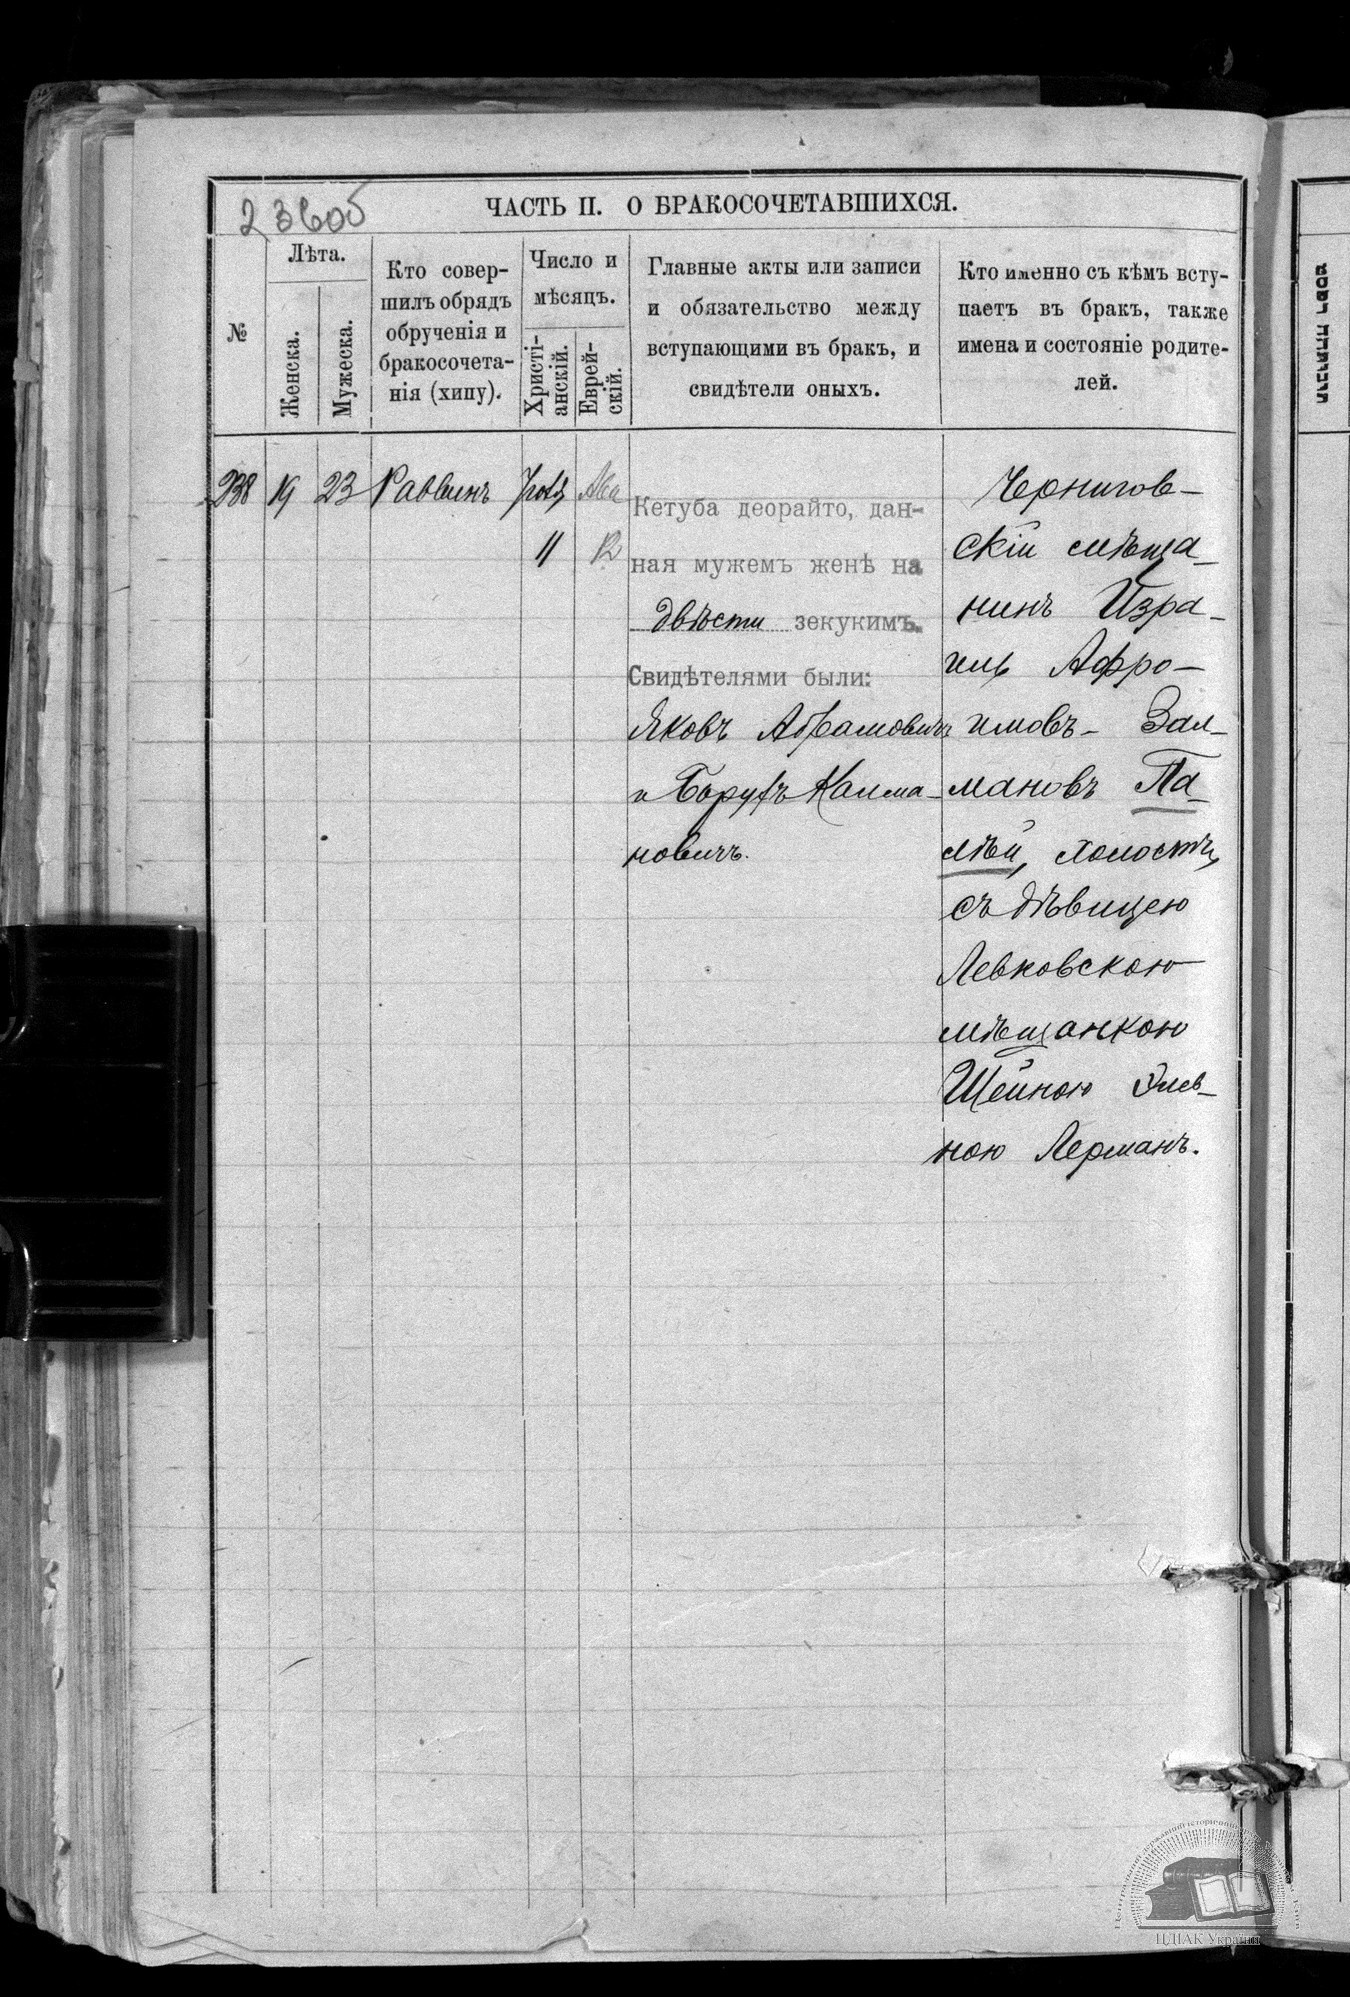 23 об
ЧАСТЬ II. О БРАКОСОЧЕТАВШИХСЯ.
№
Лѣта.
Женска.
Мужеска.
Кто совер-
шилъ обрядъ
обрученія и
бракосочета-
нія (хипу).
Число и
мѣсяцъ.
Христі-
анскій.
Еврей-
скій.
Главные акты или записи
и обязательство между
вступающими въ бракъ, и
свидѣтели оныхъ.
Кто именно съ кѣмъ всту-
паетъ въ бракъ, также
имена и состояніе родите-
лей.
238 19 23 Раввинъ Ава
11 12
Кетуба деорайто, дан-
ная мужемъ женѣ на
двѣсти зекукимъ.
Свидѣтелями были:
Яковъ Абрамовичъ
и Борухъ Калма-
новичъ.
Чернигов-
скій мѣща-
нинъ Изра-
иль Афро-
имовъ-Зал-
мановъ Па-
лѣй, холостъ,
съ дѣвицею
Левковскою
мѣщанкою
Шейною Эль-
ною Лерманъ.
ЦДІАК України